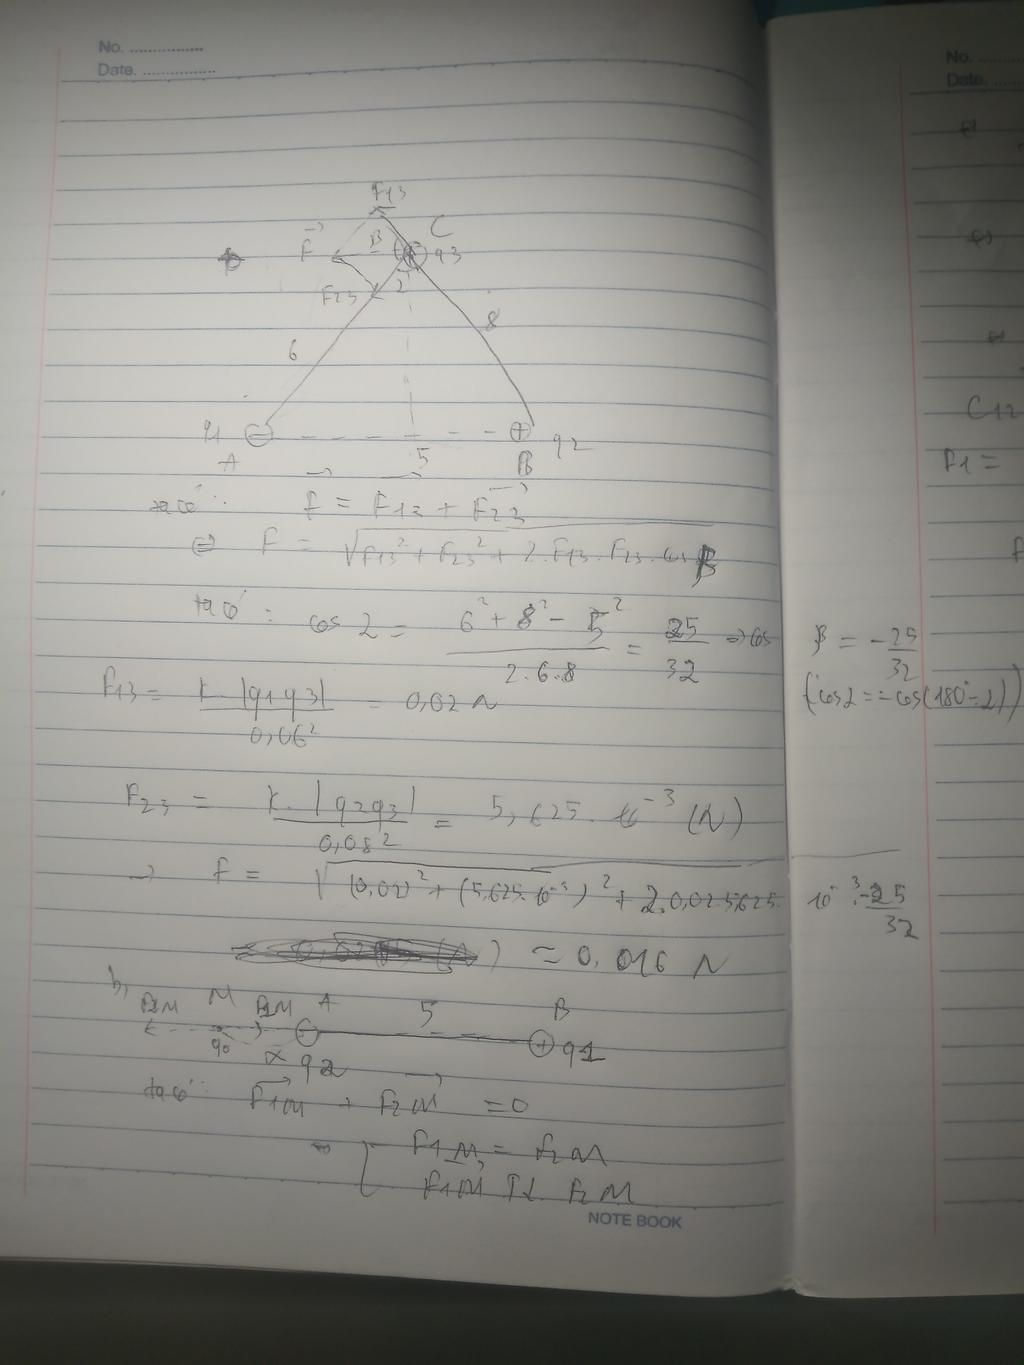 No. ................
Date. ................
No. .........
Date. .........
F13
F
β
C
q3
F23
2
8
6
q1
q2
A
5
B
ta có: F = F13 + F23
⇔ F = √F13² + F23² + 2.F13.F23.cos β
ta có: cos 2 = 6² + 8² - 5² / 2.6.8 = 25/32 ⇒ cos β = -25/32
(cos 2 = -cos(180° - 2))
F13 = k.|q1q3| / 0,06² = 0,02 N
F23 = k.|q2q3| / 0,08² = 5,625.10⁻³ (N)
→ F = √(0,02)² + (5,625.10⁻³)² + 2.0,02.5,625.10⁻³.-25/32
≈ 0,016 N
b, F2M M F1M A 5 B
q0 x q2 q1
ta có: F1M + F2M = 0
⇔ F1M = F2M
F1M ↑↓ F2M
NOTE BOOK
C12
F1 =